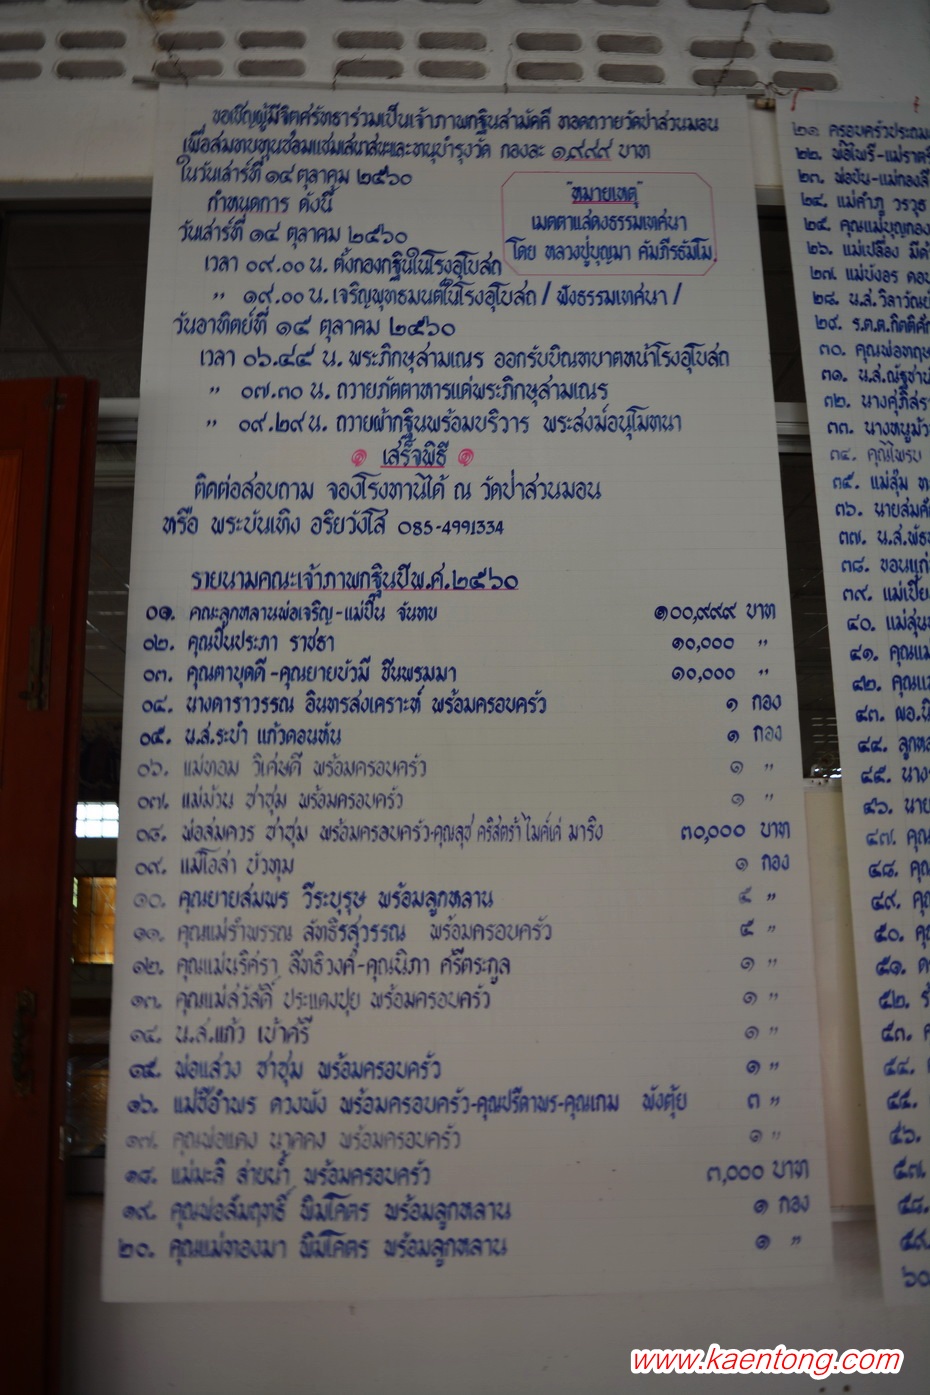 ขอเชิญผู้มีจิตศรัทธาร่วมเป็นเจ้าภาพกฐินสามัคคี ทอดถวายวัดป่าสวนมอน
เพื่อสมทบทุนซ่อมแซมเสนาสนะและทนุบำรุงวัด กองละ ๑,๙๙๙ บาท
ในวันเสาร์ที่ ๑๔ ตุลาคม ๒๕๖๐
กำหนดการ ดังนี้
วันเสาร์ที่ ๑๔ ตุลาคม ๒๕๖๐
"หมายเหตุ"
เมตตาแสดงธรรมเทศนา
โดย หลวงปู่บุญมา คัมภีรธัมโม
เวลา ๐๙.๐๐ น. ตั้งกองกฐินในโรงอุโบสถ
" ๑๙.๐๐ น. เจริญพุทธมนต์ในโรงอุโบสถ / ฟังธรรมเทศนา /
วันอาทิตย์ที่ ๑๕ ตุลาคม ๒๕๖๐
เวลา ๐๖.๔๕ น. พระภิกษุสามเณร ออกรับบิณฑบาตหน้าโรงอุโบสถ
" ๐๗.๓๐ น. ถวายภัตตาหารแด่พระภิกษุสามเณร
" ๐๙.๒๙ น. ถวายผ้ากฐินพร้อมบริวาร พระสงฆ์อนุโมทนา
เสร็จพิธี
ติดต่อสอบถาม จองโรงทานได้ ณ วัดป่าสวนมอน
หรือ พระบันเทิง อริยวังโส 085-4991334
รายนามคณะเจ้าภาพกฐินปีพ.ศ.๒๕๖๐
๐๑. คณะลูกหลานพ่อเจริญ-แม่ปิ่น จันทบ ๑๐๐,๙๙๙ บาท
๐๒. คุณปิ่นประภา ราชธา ๑๐,๐๐๐ "
๐๓. คุณตาบุดดี-คุณยายบัวมี ชินพรมมา ๑๐,๐๐๐ "
๐๔. นางดาราวรรณ อินทรสงเคราะห์ พร้อมครอบครัว ๑ กอง
๐๕. น.ส.ระบำ แก้วดอนหัน ๑ กอง
๐๖. แม่ทอม วิเศษดี พร้อมครอบครัว ๑ "
๐๗. แม่ม้วน ชาชุม พร้อมครอบครัว ๑ "
๐๘. พ่อสมควร ชาชุม พร้อมครอบครัว-คุณลุช คริสตร้า ไมค์เค่ มาริง ๓๐,๐๐๐ บาท
๐๙. แม่โอลำ บัวทุม ๑ กอง
๑๐. คุณยายสมพร วีระบุรุษ พร้อมลูกหลาน ๕ "
๑๑. คุณแม่รำพรรณ ลัทธิรสุวรรณ พร้อมครอบครัว ๕ "
๑๒. คุณแม่นริศรา สิทธิวงศ์-คุณนิภา ศรีตระกูล ๑ "
๑๓. คุณแม่สวัสดิ์ ประแดงปุย พร้อมครอบครัว ๑ "
๑๔. น.ส.แก้ว เบ้าศรี ๑ "
๑๕. พ่อแสวง ชาชุม พร้อมครอบครัว ๑ "
๑๖. แม่ชีอำพร ดวงพัง พร้อมครอบครัว-คุณปรีดาพร-คุณเกม พังตุ้ย ๓ "
๑๗. คุณพ่อแดง นาคคง พร้อมครอบครัว ๑ "
๑๘. แม่มะลิ สายน้ำ พร้อมครอบครัว ๓,๐๐๐ บาท
๑๙. คุณพ่อสัมฤทธิ์ พิมโคตร พร้อมลูกหลาน ๑ กอง
๒๐. คุณแม่ทองมา พิมโคตร พร้อมลูกหลาน ๑ "
๒๑ ครอบครัวประถม
๒๒. พ่อไพรี-แม่ราตรี
๒๓. พ่อปัน-แม่กองสี
๒๔. แม่คำภู วรวุธ
๒๕. คุณแม่บุญกอง
๒๖. แม่เปลื่อง
๒๗. แม่บังอร
๒๘. น.ส.วิลาวัณย์
๒๙. ร.ต.ต.กิตติศักดิ์
๓๐. คุณพ่อ
๓๑. น.ส.ณัฐชา
๓๒. นางศุภิสรา
๓๓. นางหนูม้วน
๓๔. คุณไพรบ
๓๕. แม่สุ่ม
๓๖. นายสมศักดิ์
๓๗. น.ส.
๓๘. ขอนแก่น
๓๙. แม่เปีย
๔๐. แม่สุน
๔๑. คุณแม่
๔๒. คุณแม่
๔๓. ผอ.
๔๔. ลูกห
๔๕. นาง
๔๖. นาย
๔๗. คุณ
๔๘. คุณ
๔๙. คุ
๕๐. คุ
๕๑.
๕๒.
๕๓.
๕๔.
๕๕.
๕๖.
๕๗.
๕๘.
๕๙.
๖๐
www.kaentong.com